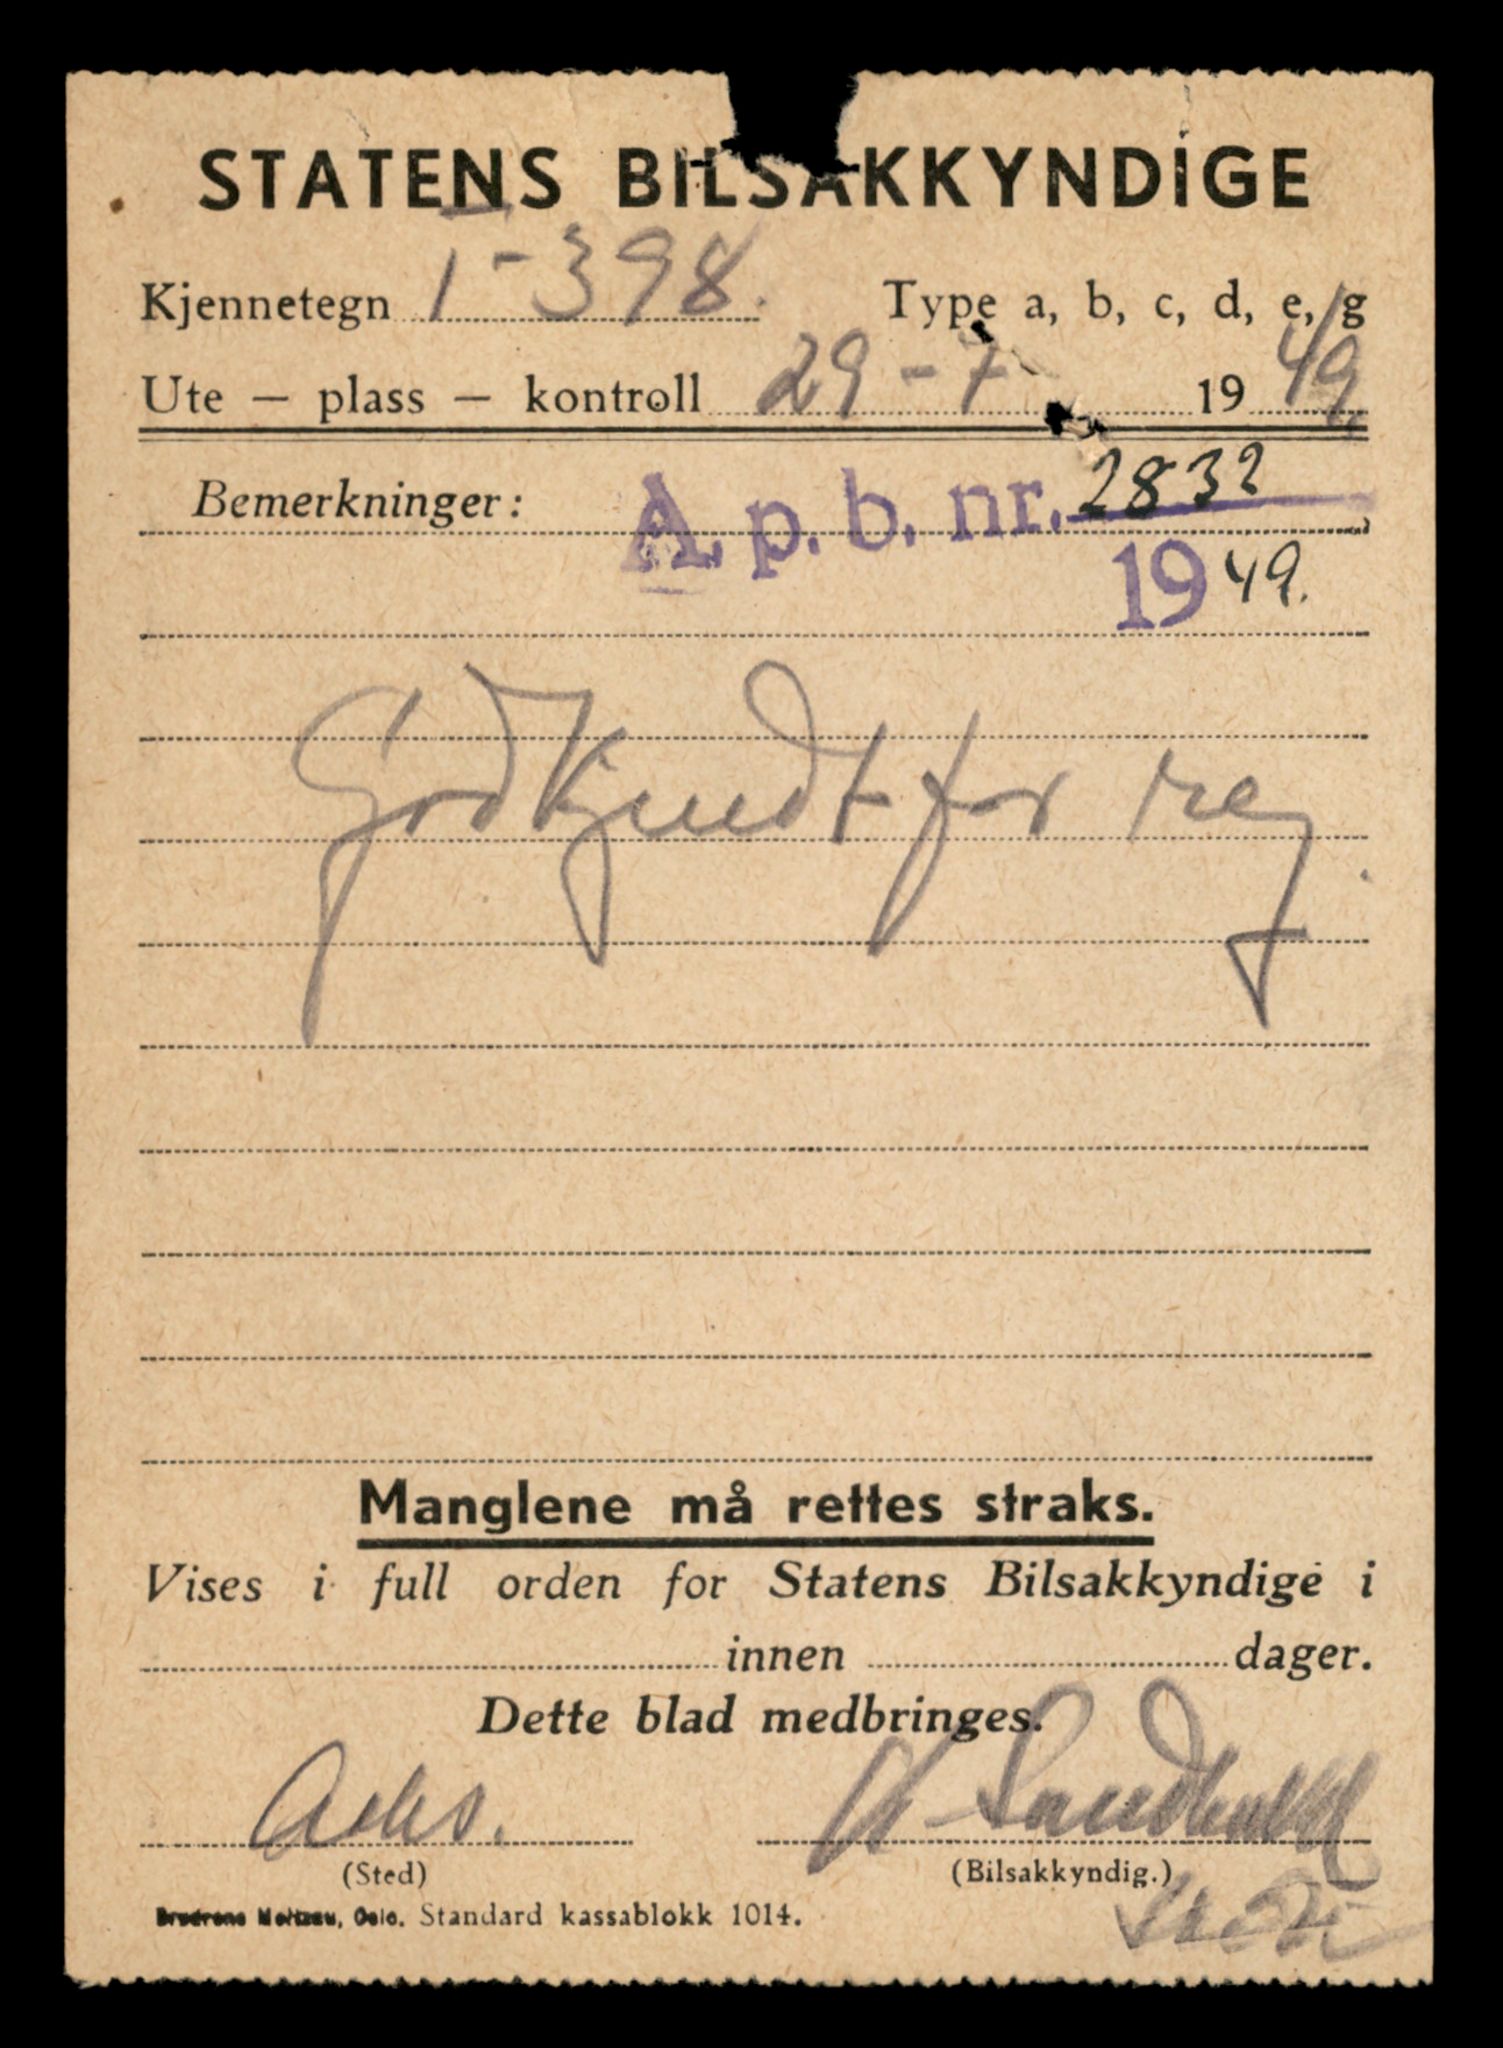 STATENS BILSAKKYNDIGE
Kjennetegn T-398. Type a, b, c, d, e, g
Ute — plass — kontroll 29-7 1949.
Bemerkninger: A.p.b. nr. 2832
1949.
Godkjendt for reg.
Manglene må rettes straks.
Vises i full orden for Statens Bilsakkyndige i
innen dager.
Dette blad medbringes.
(Sted) (Bilsakkyndig.)
Brødrene Meltzau, Oslo. Standard kassablokk 1014.